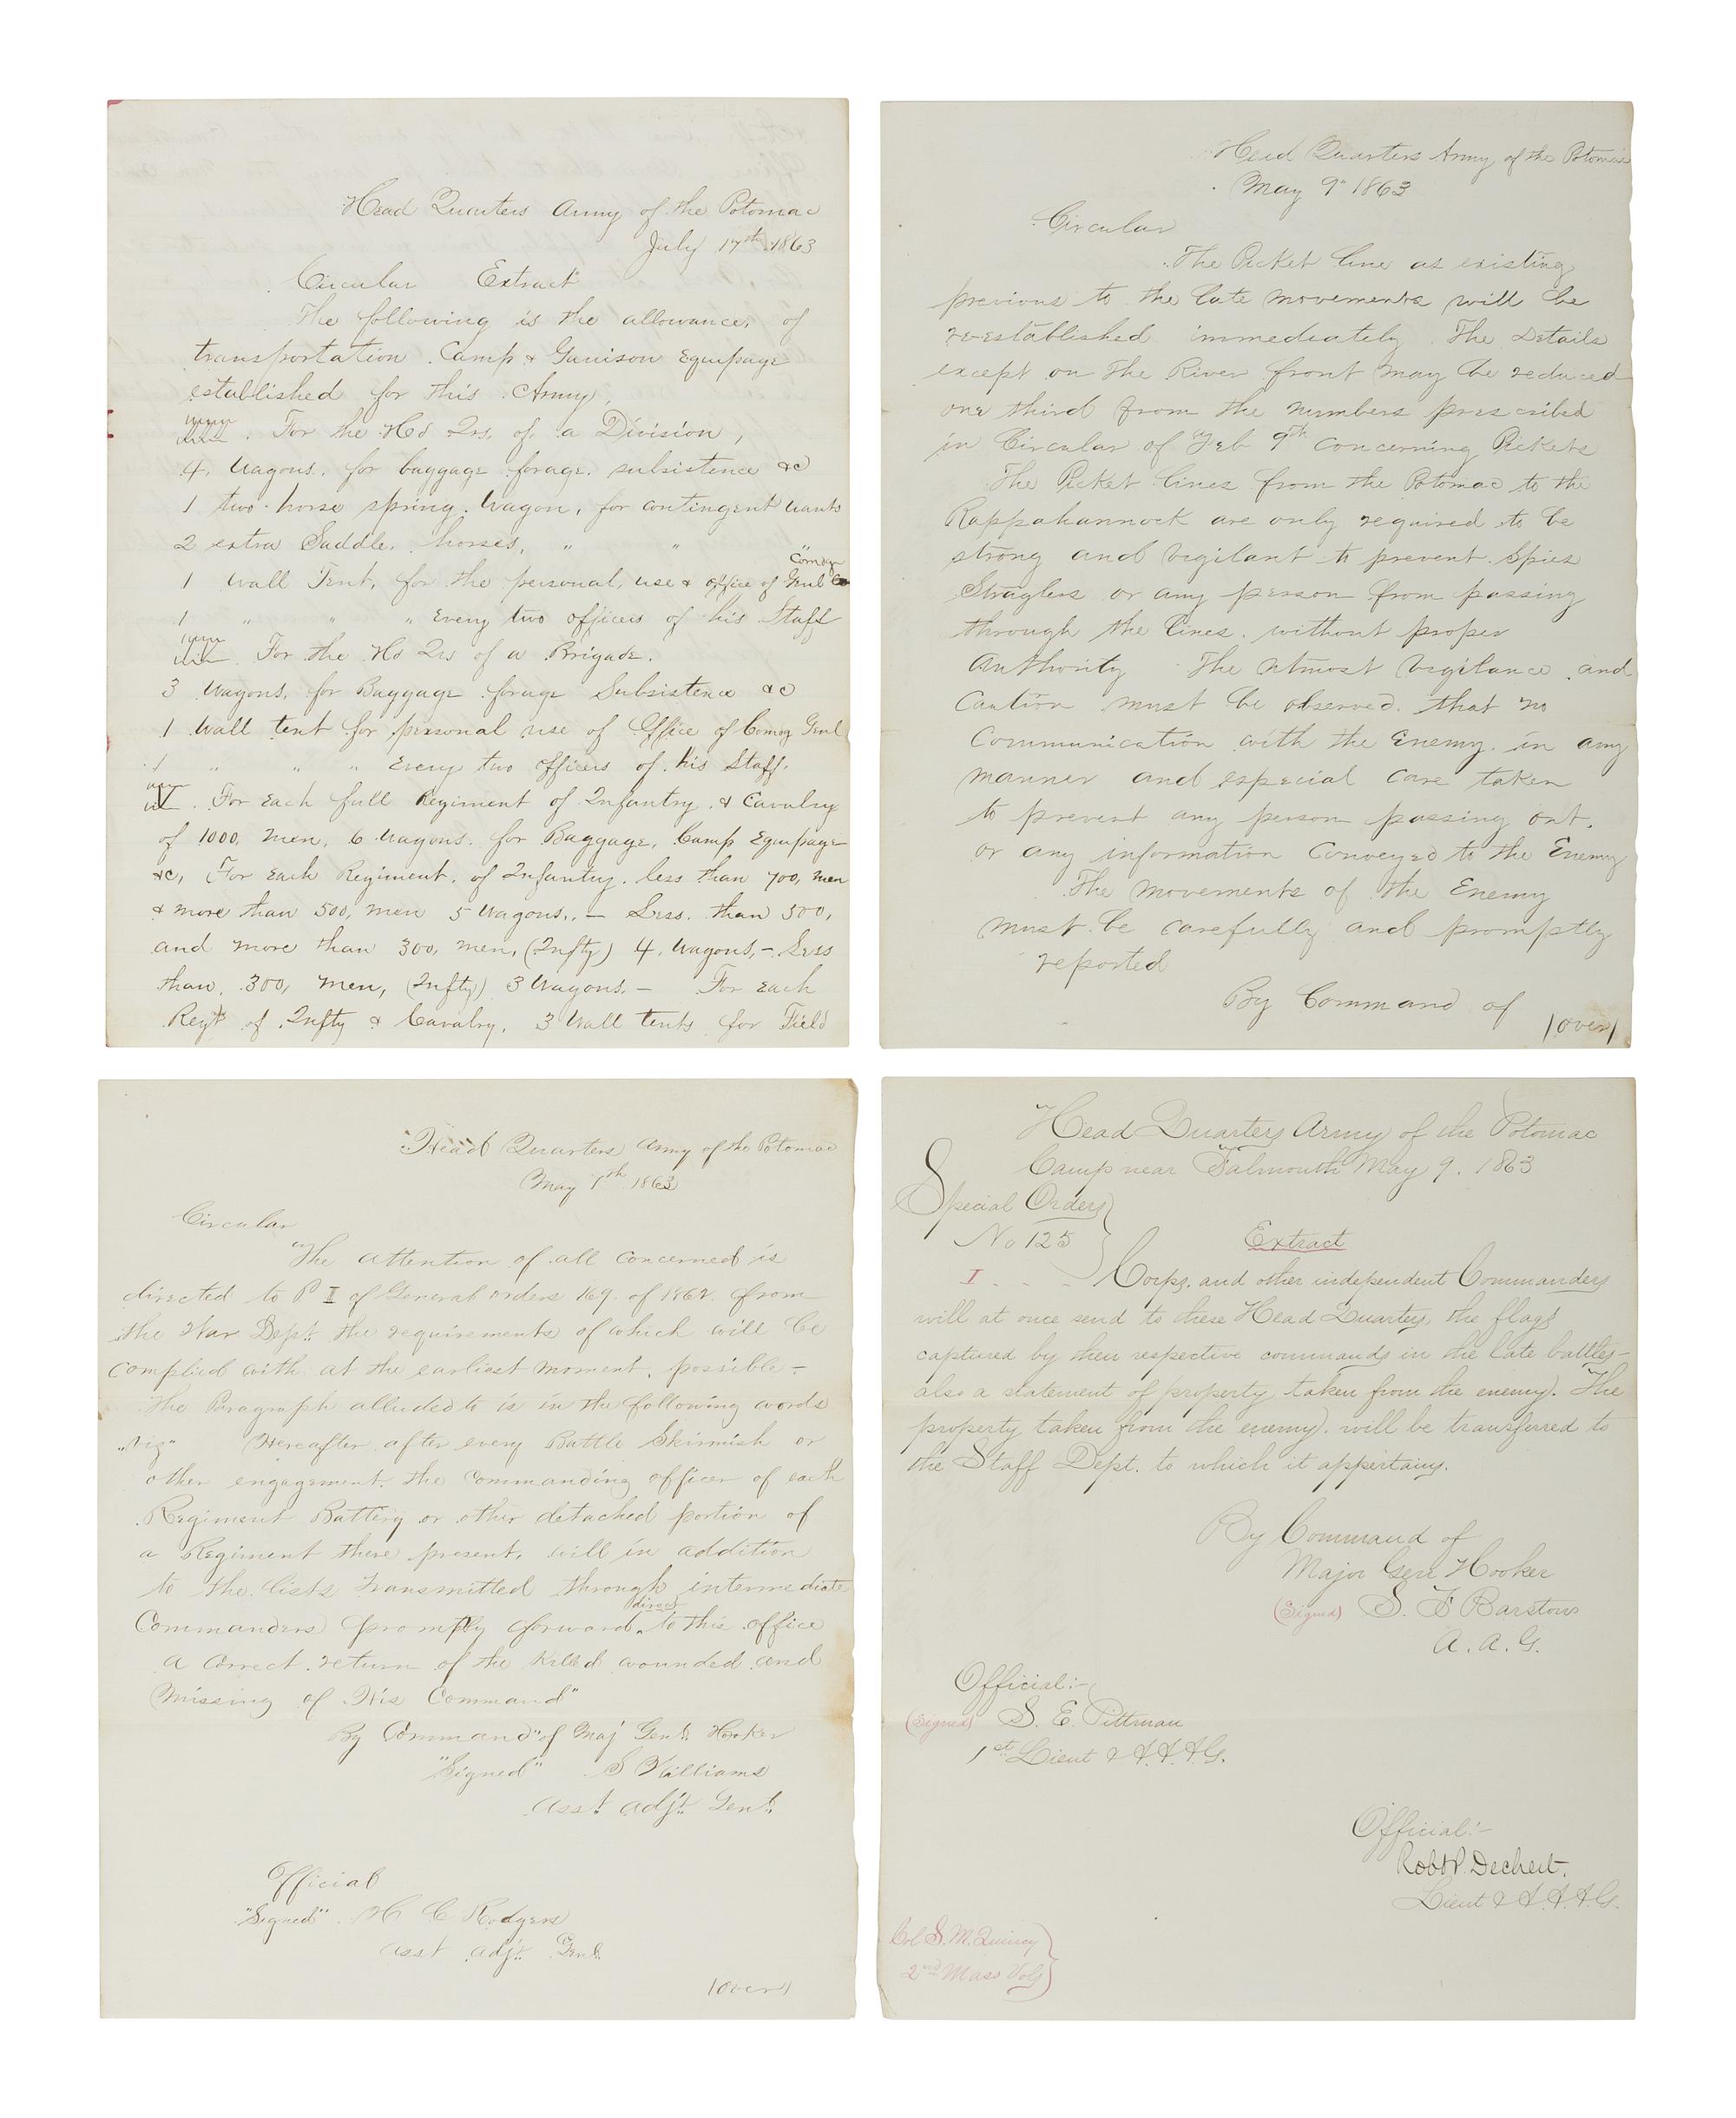 Head Quarters Army of the Potomac
July 17th 1863
Circular Extract
The following is the allowance, of
transportation Camp & Garrison Equipage
established for this Army,
For the Hd Qrs. of a Division,
4, Wagons, for baggage forage, subsistence &c
1 two horse spring Wagon, for contingent wants
2 extra Saddle, horses, " " "
Comdg
1 Wall Tent, for the personal, use & office of Genl
1 " " " Every two officers of his Staff
For the Hd Qrs of a Brigade.
3 Wagons, for Baggage forage Subsistence &c
1 Wall tent for personal use of Office of Comdg Genl
1 " " " Every two officers of his Staff.
V. For Each full Regiment of Infantry & Cavalry
of 1000, men, 6 Wagons, for Baggage, Camp Equipage
&c, For Each Regiment, of Infantry, less than 700, men
& more than 500, men 5 Wagons, — Less than 500,
and more than 300, men, (Infty) 4, Wagons, – Less
than, 300, men, (Infty) 3 Wagons, — For Each
Regt of Infty & Cavalry, 3 Wall tents for Field
Head Quarters Army of the Potomac
May 9" 1863
Circular
The Picket line as existing
previous to the late movements will be
re-established immediately The Details
except on the River front may be reduced
one third from the numbers prescribed
in Circular of Feb 9th concerning Pickets
The Picket lines from the Potomac to the
Rappahannock are only required to be
strong and vigilant to prevent Spies
Straglers or any person from passing
through the lines, without proper
Authority The utmost vigilance and
Caution must be observed that no
Communication with the Enemy in any
manner and especial care taken
to prevent any person passing out,
or any information Conveyed to the Enemy
The movements of the Enemy
must be carefully and promptly
reported
By Command of
|over|
Head Quarters Army of the Potomac
May 7th 1863
Circular
The attention of all concerned is
directed to P II of General orders 169. of 1862 from
the War Dept. the requirements of which will be
complied with at the earliest moment, possible –
The Paragraph alluded to is in the following words
"Viz" Hereafter after every Battle Skirmish or
other engagement, the Commanding officer of each
Regiment Battery or other detached portion of
a Regiment there present, will in addition
to the lists transmitted through intermediate
direct
Commanders promptly forward to this office
a correct return of the killed wounded and
missing of His Command"
By Command "of Maj Genl. Hooker
"Signed" S Williams
Asst Adjt. Genl.
Official
"Signed" H C Rodgers
Asst Adjt. Genl.
|over|
Head Quarters Army of the Potomac
Camp near Falmouth May 9. 1863
Special Orders
No 125
Extract
I. . . . Corps, and other independent Commanders
will at once send to these Head Quarters the flags
captured by their respective commands in the late battles–
also a statement of property taken from the enemy. The
property taken from the enemy will be transferred to
the Staff Dept. to which it appertains.
By Command of
Major Genl Hooker
(Signed) S. F Barstow
A. A. G.
Official:-
(Signed) S. E. Pittman
1st Lieut & A. A. A. G.
Official:-
Robt P. Dechert.
Lieut & A. A. A. G.
Col S. M. Quincy
2nd Mass Vols